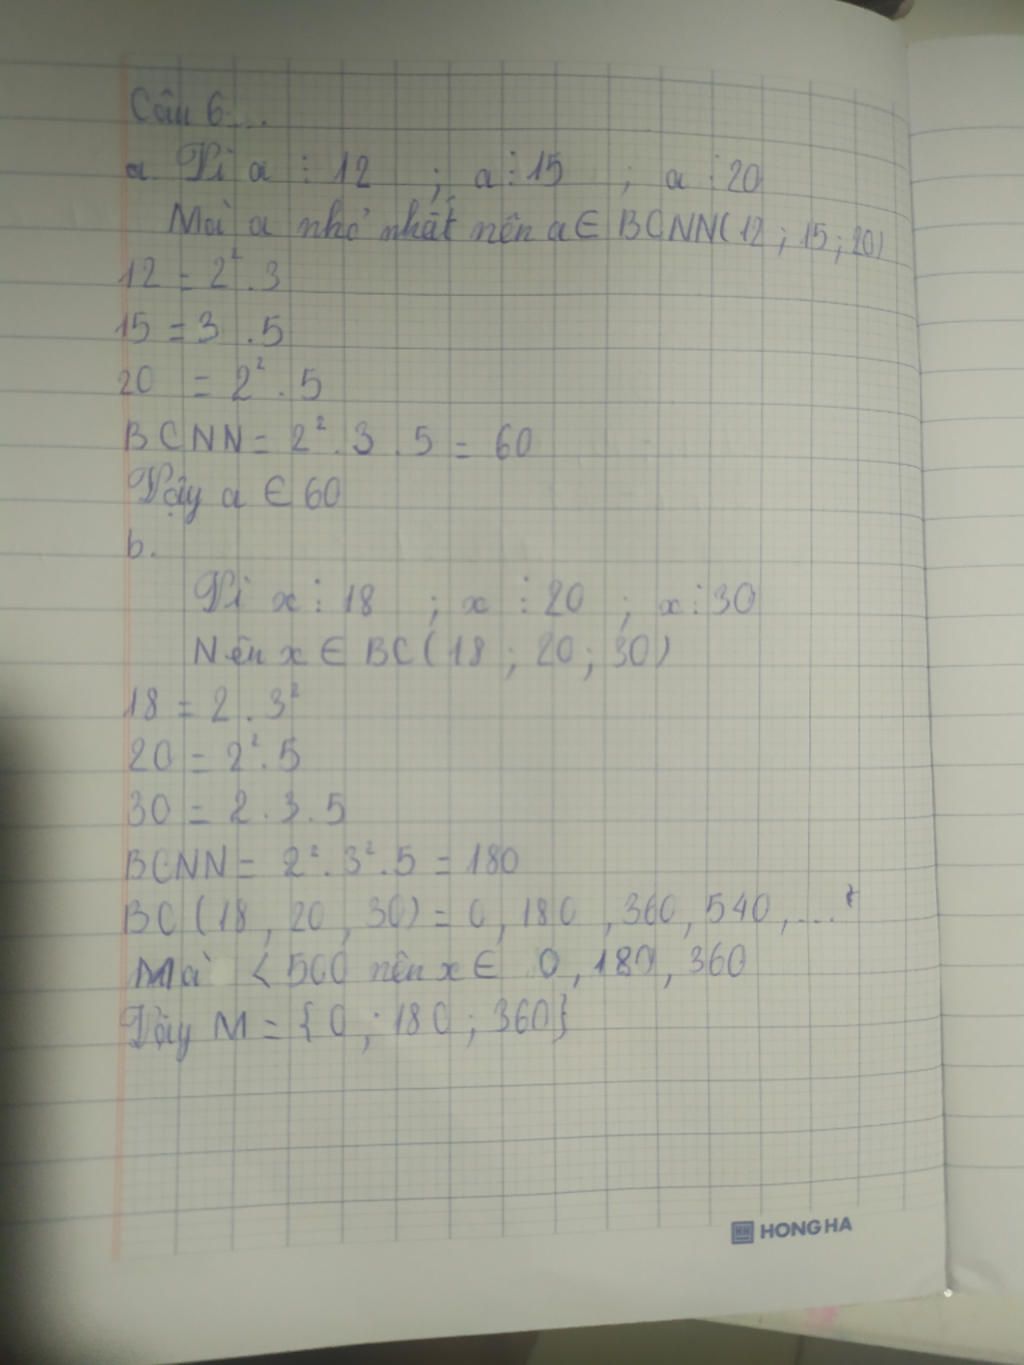 Câu 6...
a. Vì a ⋮ 12 ; a ⋮ 15 ; a ⋮ 20
Mà a nhỏ nhất nên a ∈ BCNN(12 ; 15 ; 20)
12 = 2² . 3
15 = 3 . 5
20 = 2² . 5
BCNN = 2² . 3 . 5 = 60
Vậy a ∈ 60
b.
Vì x ⋮ 18 ; x ⋮ 20 ; x ⋮ 30
Nên x ∈ BC(18 ; 20 ; 30)
18 = 2 . 3²
20 = 2² . 5
30 = 2 . 3 . 5
BCNN = 2² . 3² . 5 = 180
BC (18 , 20 , 30) = 0 , 180 , 360 , 540 , ....
Mà < 500 nên x ∈ 0 , 180 , 360
Vậy M = {0 ; 180 ; 360}
HONG HA